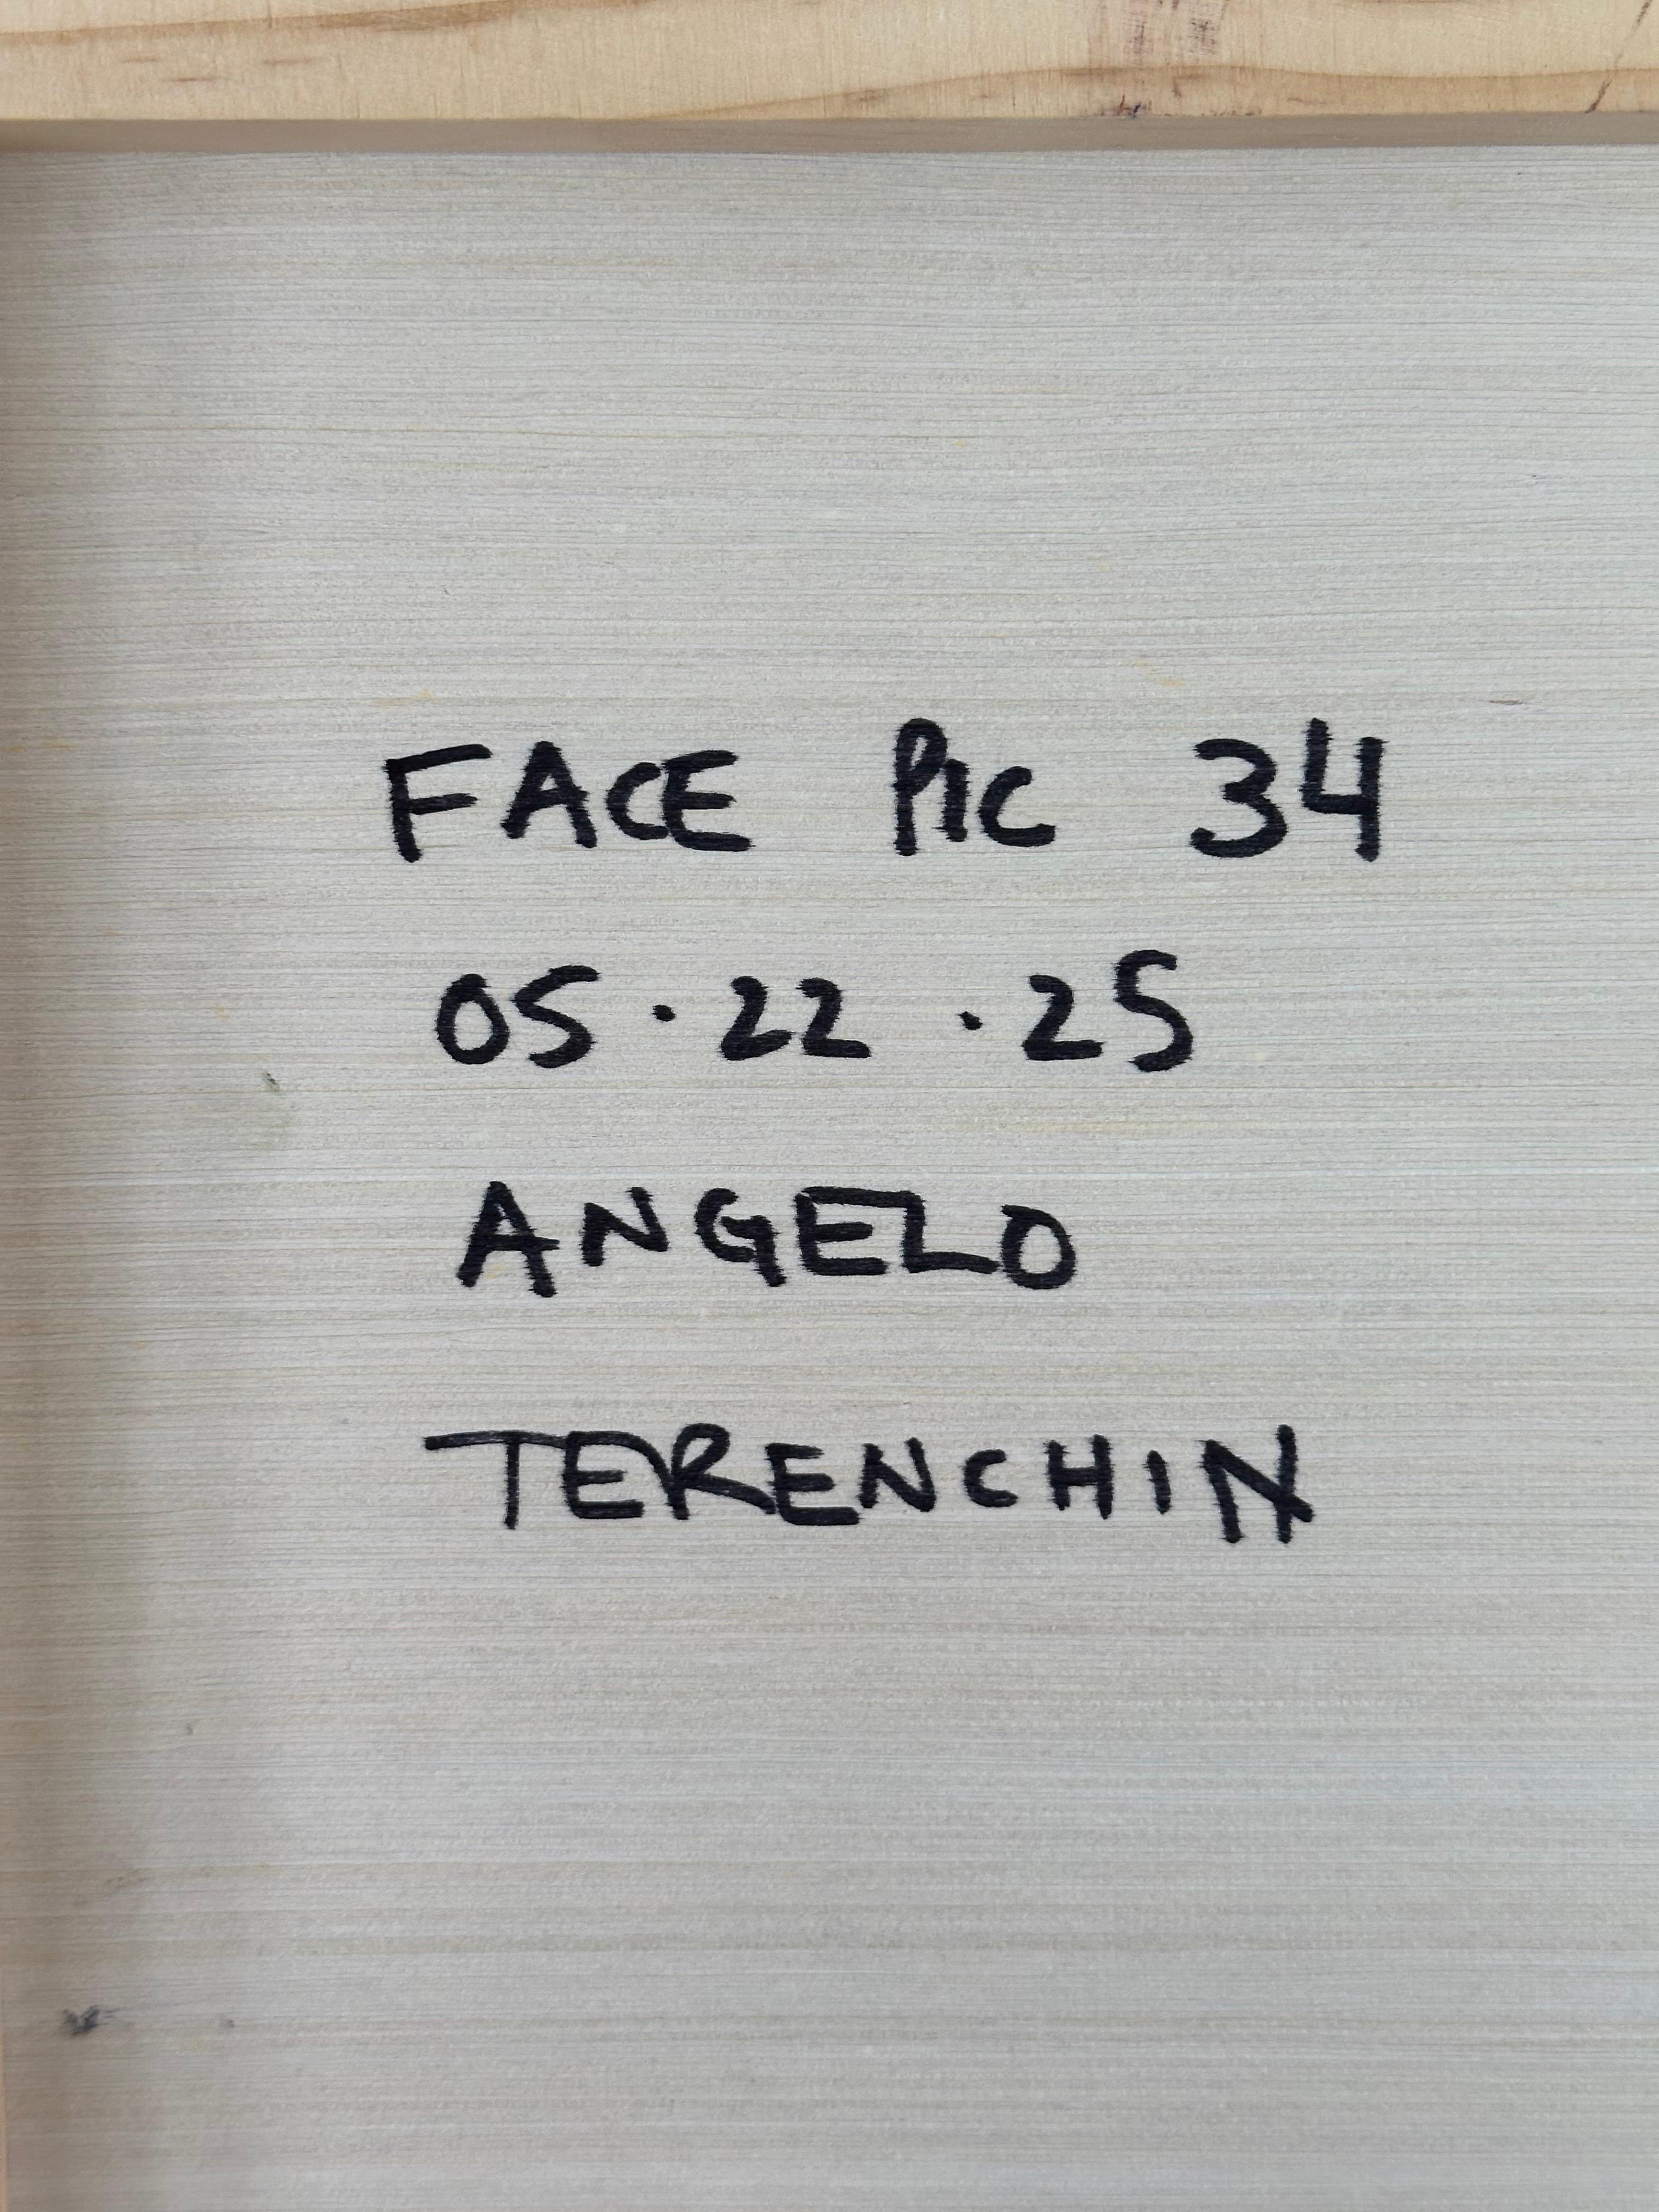 FACE PIC 34
05.22.25
ANGELO
TERENCHIN